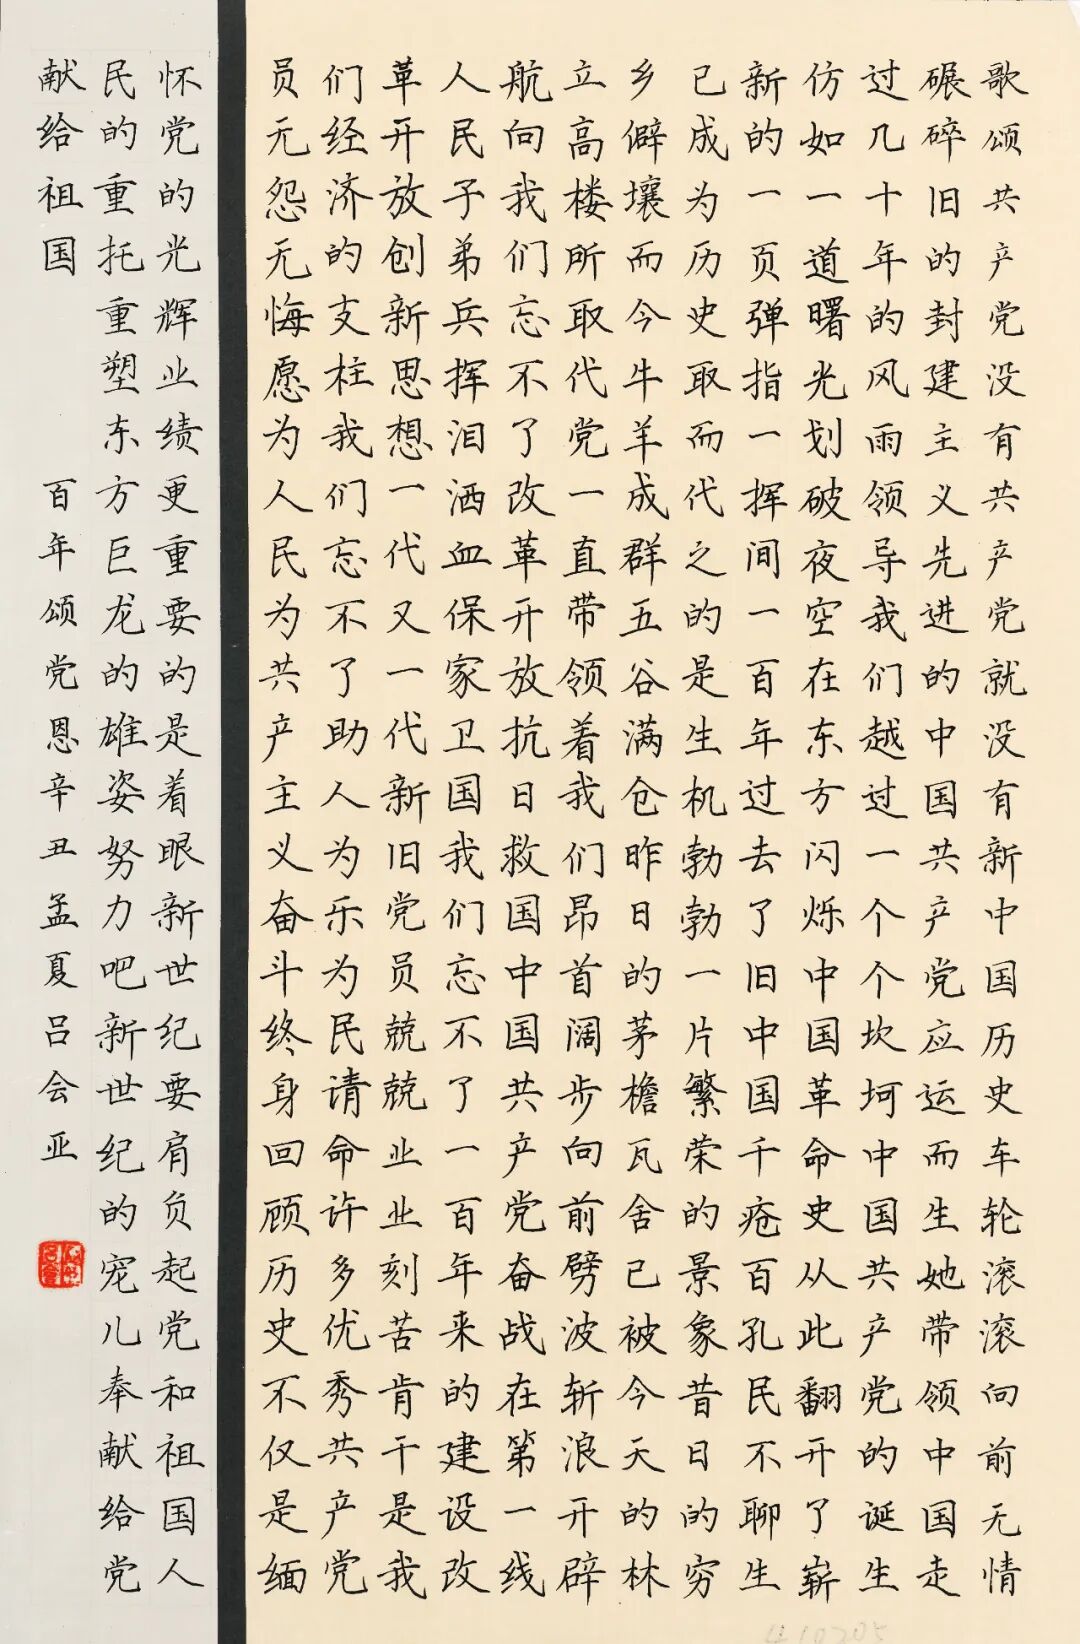 歌颂共产党没有共产党就没有新中国历史车轮滚滚向前无情
碾碎旧的封建主义先进的中国共产党应运而生她带领中国走
过几十年的风雨领导我们越过一个个坎坷中国共产党的诞生
仿如一道曙光划破夜空在东方闪烁中国革命史从此翻开了崭
新的一页弹指一挥间一百年过去了旧中国千疮百孔民不聊生
已成为历史取而代之的是生机勃勃一片繁荣的景象昔日的穷
乡僻壤而今牛羊成群五谷满仓昨日的茅檐瓦舍已被今天的林
立高楼所取代党一直带领着我们昂首阔步向前劈波斩浪开辟
航向我们忘不了改革开放抗日救国中国共产党奋战在第一线
人民子弟兵挥泪洒血保家卫国我们忘不了一百年来的建设改
革开放创新思想一代又一代新旧党员兢兢业业刻苦肯干是我
们经济的支柱我们忘不了助人为乐为民请命许多优秀共产党
员无怨无悔愿为人民为共产主义奋斗终身回顾历史不仅是缅
怀党的光辉业绩更重要的是着眼新世纪要肩负起党和祖国人
民的重托重塑东方巨龙的雄姿努力吧新世纪的宠儿奉献给党
献给祖国 百年颂党恩辛丑孟夏吕会亚